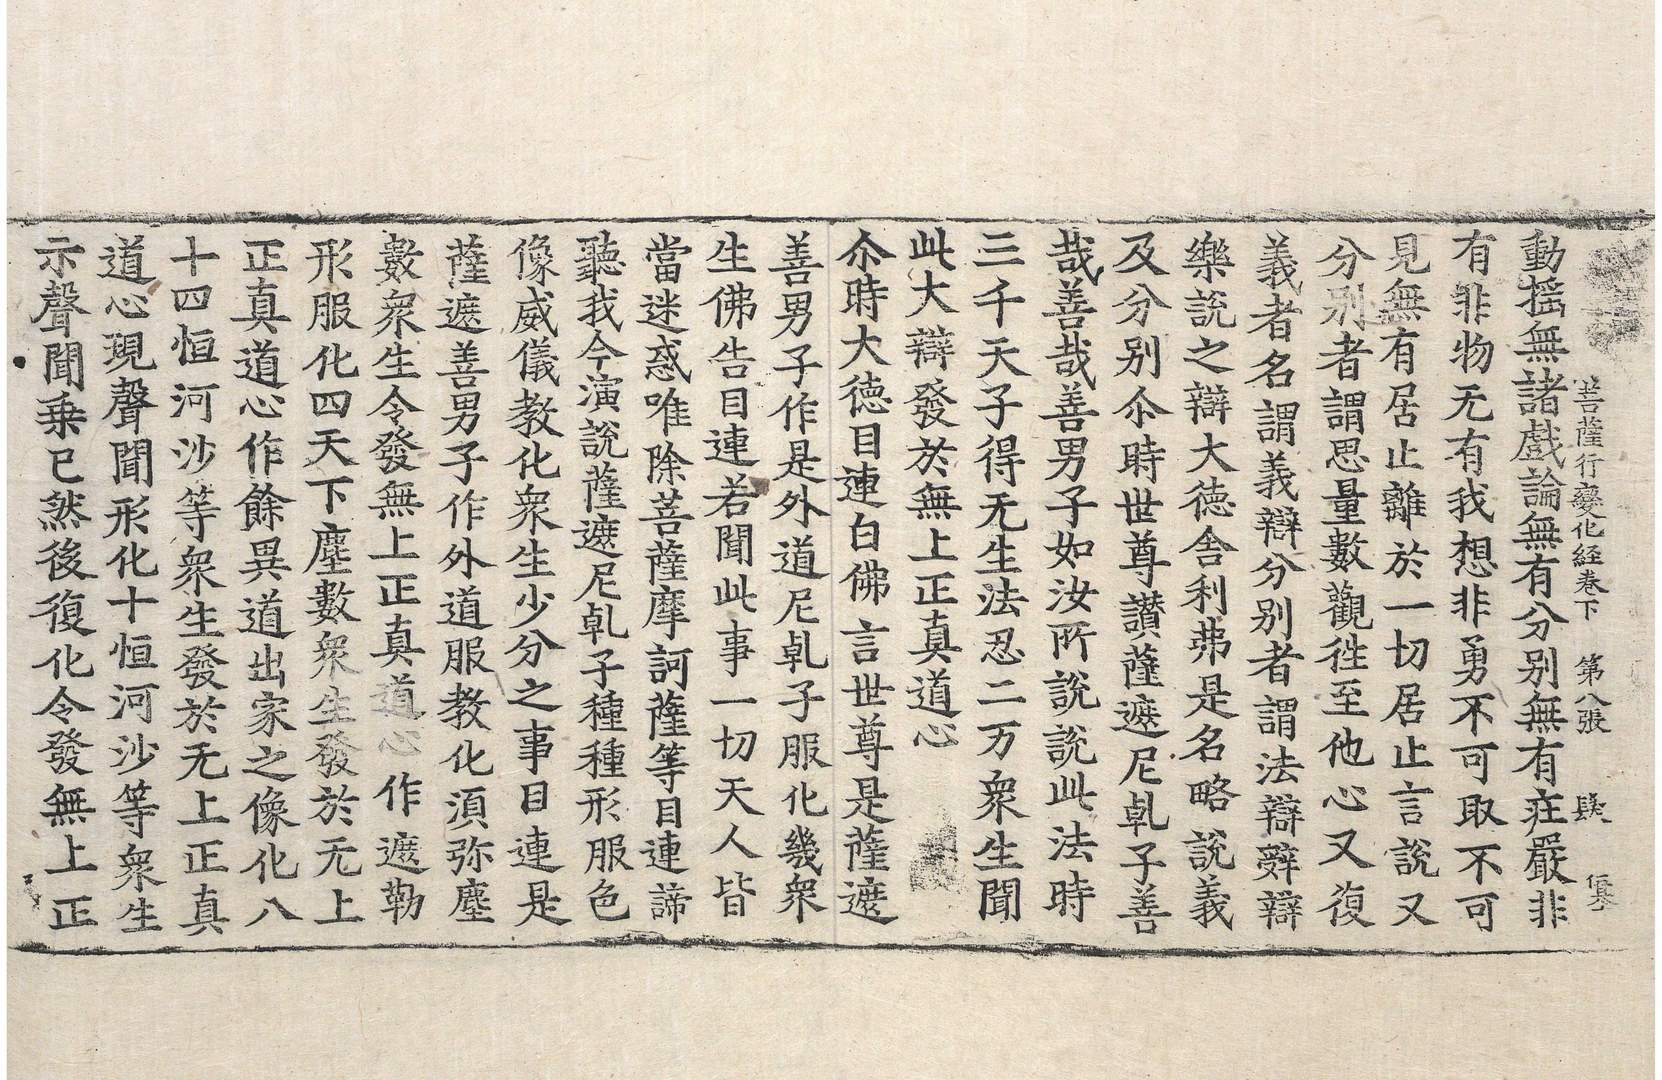 菩薩行變化経卷下　第八張
動揺無諸戲論無有分别無有疰嚴非
有非物无有我想非勇不可取不可
見無有居止離於一切居止言説又
分别者謂思量數觀徃至他心又復
義者名謂義辯分别者謂法辯辤辯
樂説之辯大德舍利弗是名略説義
及分别尒時世尊讃薩遮尼乹子善
哉善哉善男子如汝所説説此法時
三千天子得无生法忍二万衆生聞
此大辯發於無上正真道心
尒時大德目連白佛言世尊是薩遮
善男子作是外道尼乹子服化幾衆
生佛告目連若聞此事一切天人皆
當迷惑唯除菩薩摩訶薩等目連諦
聽我今演説薩遮尼乹子種種形服色
像威儀教化衆生少分之事目連是
薩遮善男子作外道服教化湏弥塵
數衆生令發無上正真道心作遮勒
形服化四天下塵數衆生發於无上
正真道心作餘異道出家之像化八
十四恒河沙等衆生發於无上正真
道心現聲聞形化十恒河沙等衆生
示聲聞乗已然後復化令發無上正